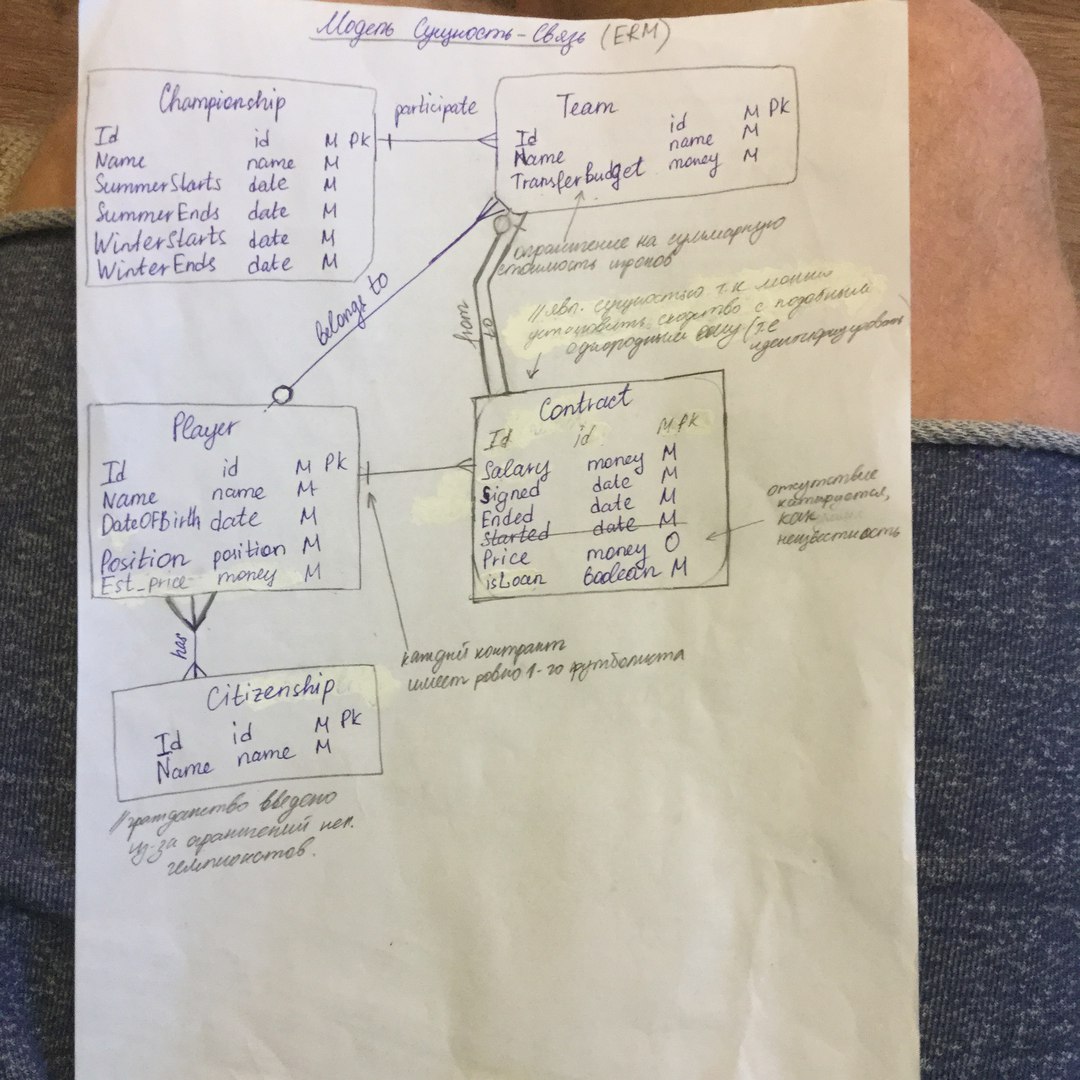 Модель Сущность-Связь (ERM)
Championship
Id id M Pk
Name name M
SummerStarts date M
SummerEnds date M
WinterStarts date M
WinterEnds date M
participate
Team
Id id M Pk
Name name M
TransferBudget money M
ограничение на суммарную
стоимость игроков
belongs to
from
to
//явл. сущностью т.к можно
установить сходство с подобным
однородным ему (т.е
идентифицировать
Player
Id id M Pk
Name name M
DateOfBirth date M
Position position M
Est_price money M
Contract
Id id M Pk
Salary money M
Signed date M
Ended date M
Started date M
Price money O
isLoan Boolean M
отсутствие
контрактся,
как
неизвестность
has
каждый контракт
имеет ровно 1-го футболиста
Citizenship
Id id M Pk
Name name M
//гражданство введено
из-за ограничений нек.
чемпионатов.